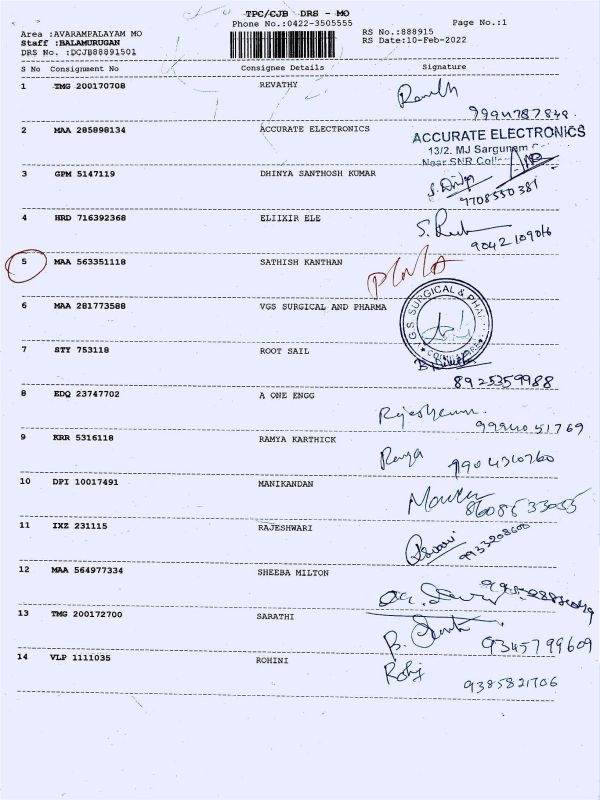 TPC/CJB DRS - MO
Phone No.:0422-3505555
Page No.:1
Area :AVARAMPALAYAM MO
Staff :BALAMURUGAN
DRS No. :DCJB88891501
RS No.:888915
RS Date:10-Feb-2022
S No Consignment No Consignee Details Signature
1 TMG 200170708 REVATHY
2 MAA 285898134 ACCURATE ELECTRONICS
ACCURATE ELECTRONICS
13/2, MJ Sargunam
Near SNR
3 GPM 5147119 DHINYA SANTHOSH KUMAR
9708550381
4 HRD 716392368 ELIIXIR ELE
9042109016
5 MAA 563351118 SATHISH KANTHAN
6 MAA 281773588 VGS SURGICAL AND PHARMA
VGS SURGICAL &
7 STY 753118 ROOT SAIL
8925359988
8 EDQ 23747702 A ONE ENGG
9994051769
9 KRR 5316118 RAMYA KARTHICK
Ramya
9904310760
10 DPI 10017491 MANIKANDAN
11 IXZ 231115 RAJESHWARI
9933208600
12 MAA 564977334 SHEEBA MILTON
13 TMG 200172700 SARATHI
9345799609
14 VLP 1111035 ROHINI
9385821706